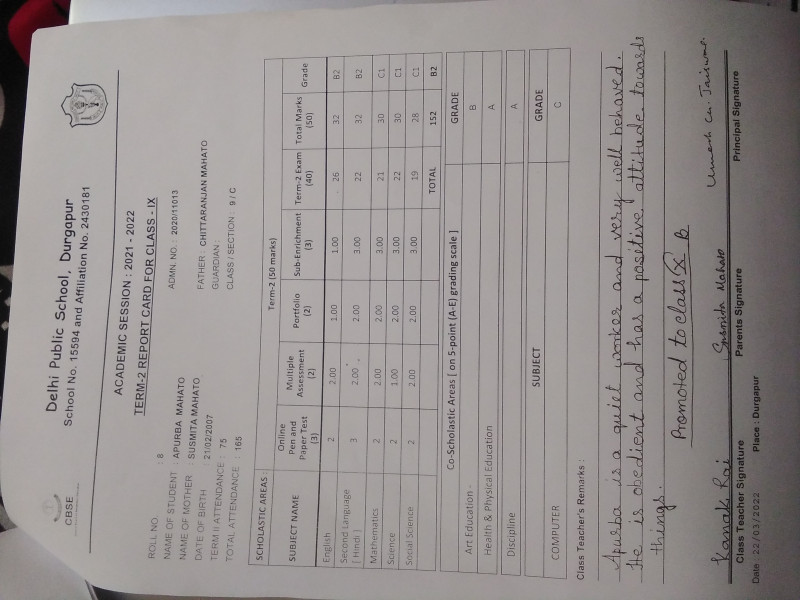 Delhi Public School, Durgapur
School No. 15594 and Affiliation No. 2430181
CBSE
ACADEMIC SESSION : 2021 - 2022
TERM-2 REPORT CARD FOR CLASS - IX
ROLL NO. : 8 ADMN. NO. : 2020/11013
NAME OF STUDENT : APURBA MAHATO
NAME OF MOTHER : SUSMITA MAHATO FATHER : CHITTARANJAN MAHATO
DATE OF BIRTH : 21/02/2007 GUARDIAN :
TERM II ATTENDANCE : 75 CLASS / SECTION : 9 / C
TOTAL ATTENDANCE : 165
SCHOLASTIC AREAS : Term-2 (50 marks)
SUBJECT NAME Online Pen and Paper Test (3) Multiple Assessment (2) Portfolio (2) Sub-Enrichment (3) Term-2 Exam (40) Total Marks (50) Grade
English 2 2.00 1.00 1.00 26 32 B2
Second Language [ Hindi ] 3 2.00 2.00 3.00 22 32 B2
Mathematics 2 2.00 2.00 3.00 21 30 C1
Science 2 1.00 2.00 3.00 22 30 C1
Social Science 2 2.00 2.00 3.00 19 28 C1
TOTAL 152 B2
Co-Scholastic Areas [ on 5-point (A-E) grading scale ] GRADE
Art Education - B
Health & Physical Education A
Discipline A
SUBJECT GRADE
COMPUTER C
Class Teacher's Remarks :
Apurba is a quiet worker and very well behaved.
He is obedient and has a positive attitude towards
things.
Promoted to class X B
Kanak Rai Susmita Mahato Umesh Ch. Jaiswal
Class Teacher Signature Parents Signature Principal Signature
Date : 22/03/2022 Place : Durgapur